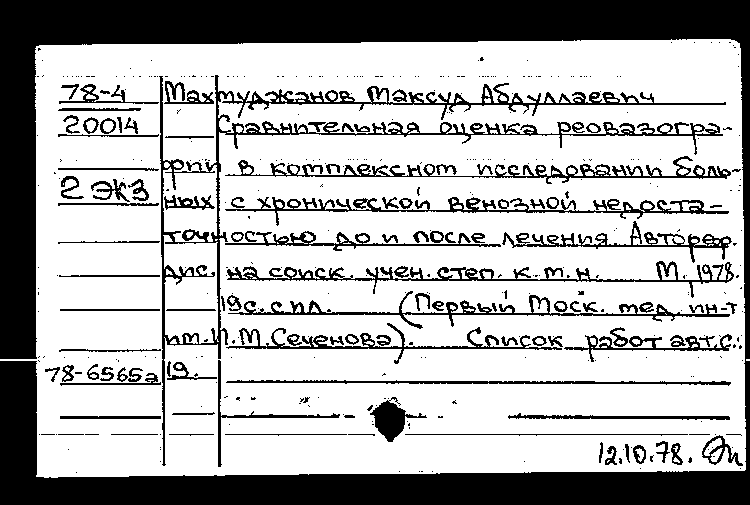 78-4 Махмуджанов, Максуд Абдуллаевич
20014 Сравнительная оценка реовазогра-
фии в комплексном исследовании боль-
2 экз ных с хронической венозной недоста-
точностью до и после лечения. Автореф.
дис. на соиск. учен. степ. к.м.н. М., 1978.
19 с. с ил. (Первый Моск. мед. ин-т
им. И.М. Сеченова). Список работ авт. с.:
78-6565а 19.
12.10.78.